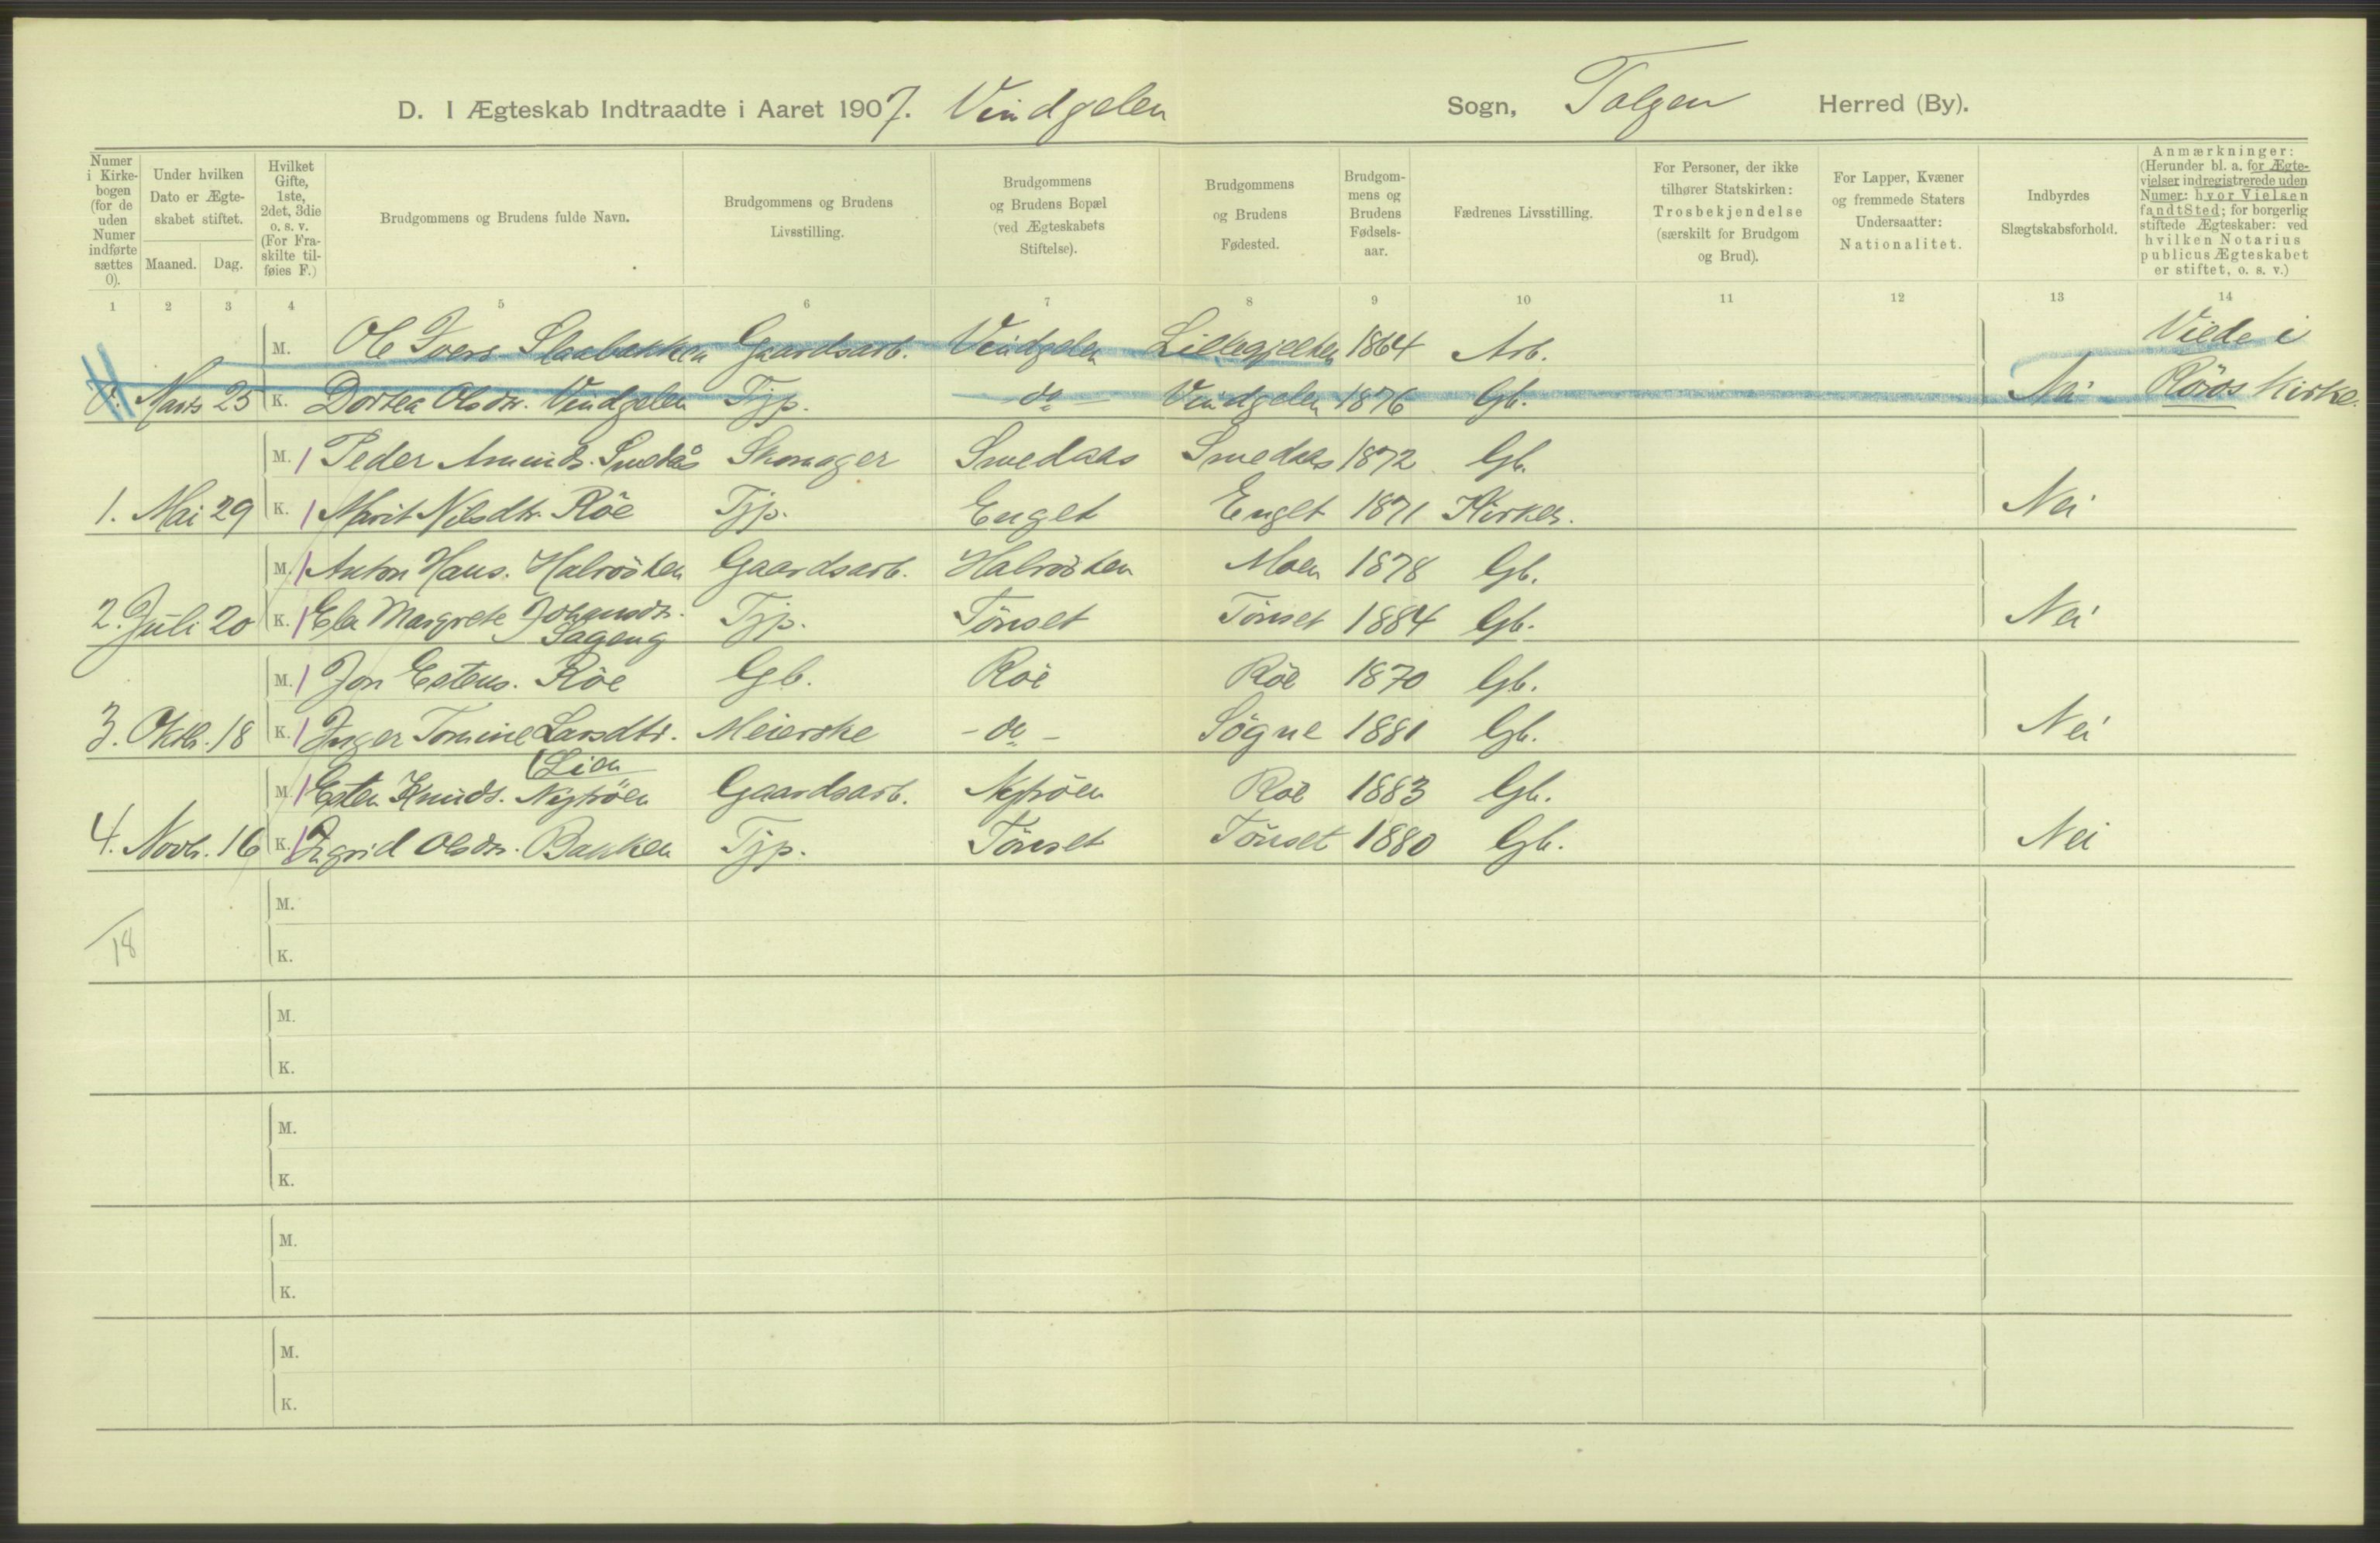 D. I Ægteskab Indtraadte i Aaret 1907. Vindgelen Sogn, Tolgen Herred (By).
Numer i Kirke-bogen (for de uden Numer indførte sættes 0).
Under hvilken Dato er Ægte-skabet stiftet.
Maaned. Dag.
Hvilket Gifte, 1ste, 2det, 3die o. s. v. (For Fra-skilte til-føies F.)
Brudgommens og Brudens fulde Navn.
Brudgommens og Brudens Livsstilling.
Brudgommens og Brudens Bopæl (ved Ægteskabets Stiftelse).
Brudgommens og Brudens Fødested.
Brudgom-mens og Brudens Fødsels-aar.
Fædrenes Livsstilling.
For Personer, der ikke tilhører Statskirken: Trosbekjendelse (særskilt for Brudgom og Brud).
For Lapper, Kvæner og fremmede Staters Undersaatter: Nationalitet.
Indbyrdes Slægtskabsforhold.
Anmærkninger: (Herunder bl. a. for Ægte-vielser indregistrerede uden Numer: hvor Vielsen fandt Sted; for borgerlig stiftede Ægteskaber: ved hvilken Notarius publicus Ægteskabet er stiftet, o. s. v.)
1 2 3 4 5 6 7 8 9 10 11 12 13 14
M. Ole Ivers. Gaardsarb. Vindgelen 1864 Arb. Viede i
0. Marts 25 K. Dortea Olsdr. Vindgelen Tjp. do Vindgelen 1876 Gb. Nei Röros Kirke.
M. 1 Peder Amunds. Smedås Skomager Smedaas Smedaas 1872 Gb.
1. Mai 29 K. 1 Marit Nilsdtr. Röe Tjp. Enget Enget 1871 Kirkes. Nei
M. 1 Anton Hans. Halvösken Gaardsarb. Halvösken Moen 1878 Gb.
2. Juli 20 K. 1 Eli Margrete Johansdr. Sageng Tjp. Tönset Tönset 1884 Gb. Nei
M. 1 Jon Estens. Röe Gb. Röe Röe 1870 Gb.
3. Oktb. 18 K. 1 Inger Tomine Larsdtr. Lien Meierske - do - Sögne 1881 Gb. Nei
M. 1 Esten Knuds. Nyhröen Gaardsarb. Nyhröen Röe 1883 Gb.
4. Novb. 16 K. 1 Ingrid Olsdr. Bakken Tjp. Tönset Tönset 1880 Gb. Nei
M.
18
K.
M.
K.
M.
K.
M.
K.
M.
K.